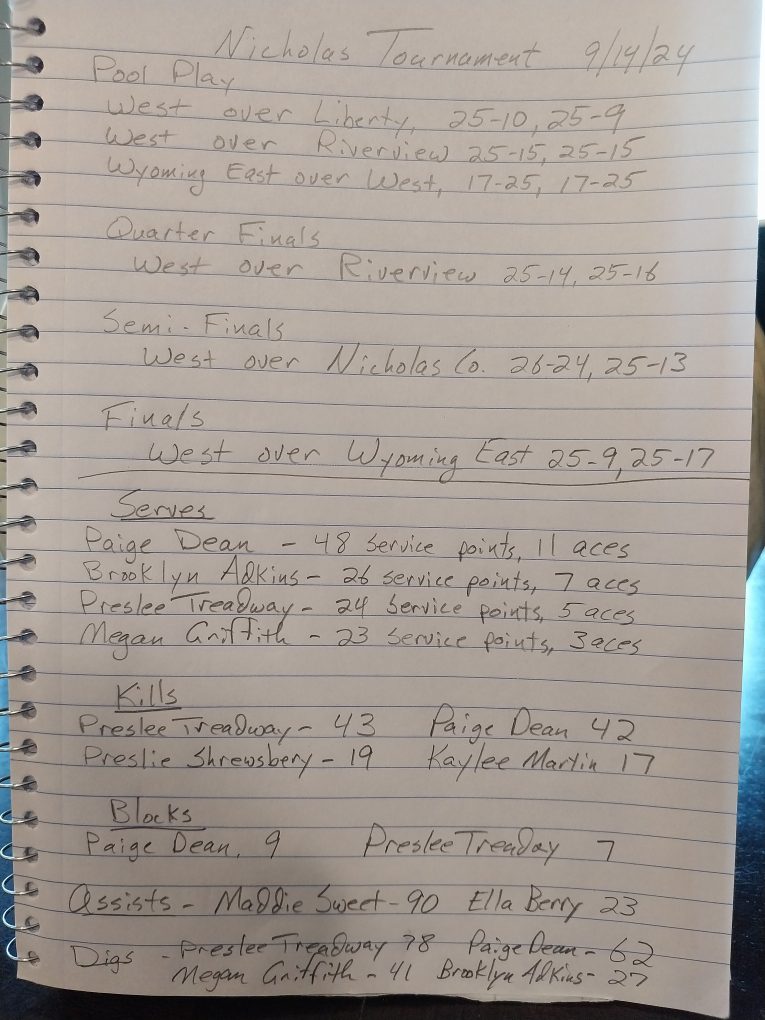 Nicholas Tournament 9/14/24
Pool Play
West over Liberty, 25-10, 25-9
West over Riverview 25-15, 25-15
Wyoming East over West, 17-25, 17-25
Quarter Finals
West over Riverview 25-14, 25-16
Semi-Finals
West over Nicholas Co. 26-24, 25-13
Finals
West over Wyoming East 25-9, 25-17
Serves
Paige Dean - 48 service points, 11 aces
Brooklyn Adkins - 26 service points, 7 aces
Preslee Treadway - 24 service points, 5 aces
Megan Griffith - 23 service points, 3 aces
Kills
Preslee Treadway - 43 Paige Dean 42
Preslie Shrewsbery - 19 Kaylee Martin 17
Blocks
Paige Dean, 9 Preslee Treaday 7
Assists - Maddie Sweet - 90 Ella Berry 23
Digs - Preslee Treadway 78 Paige Dean - 62
Megan Griffith - 41 Brooklyn Adkins - 27